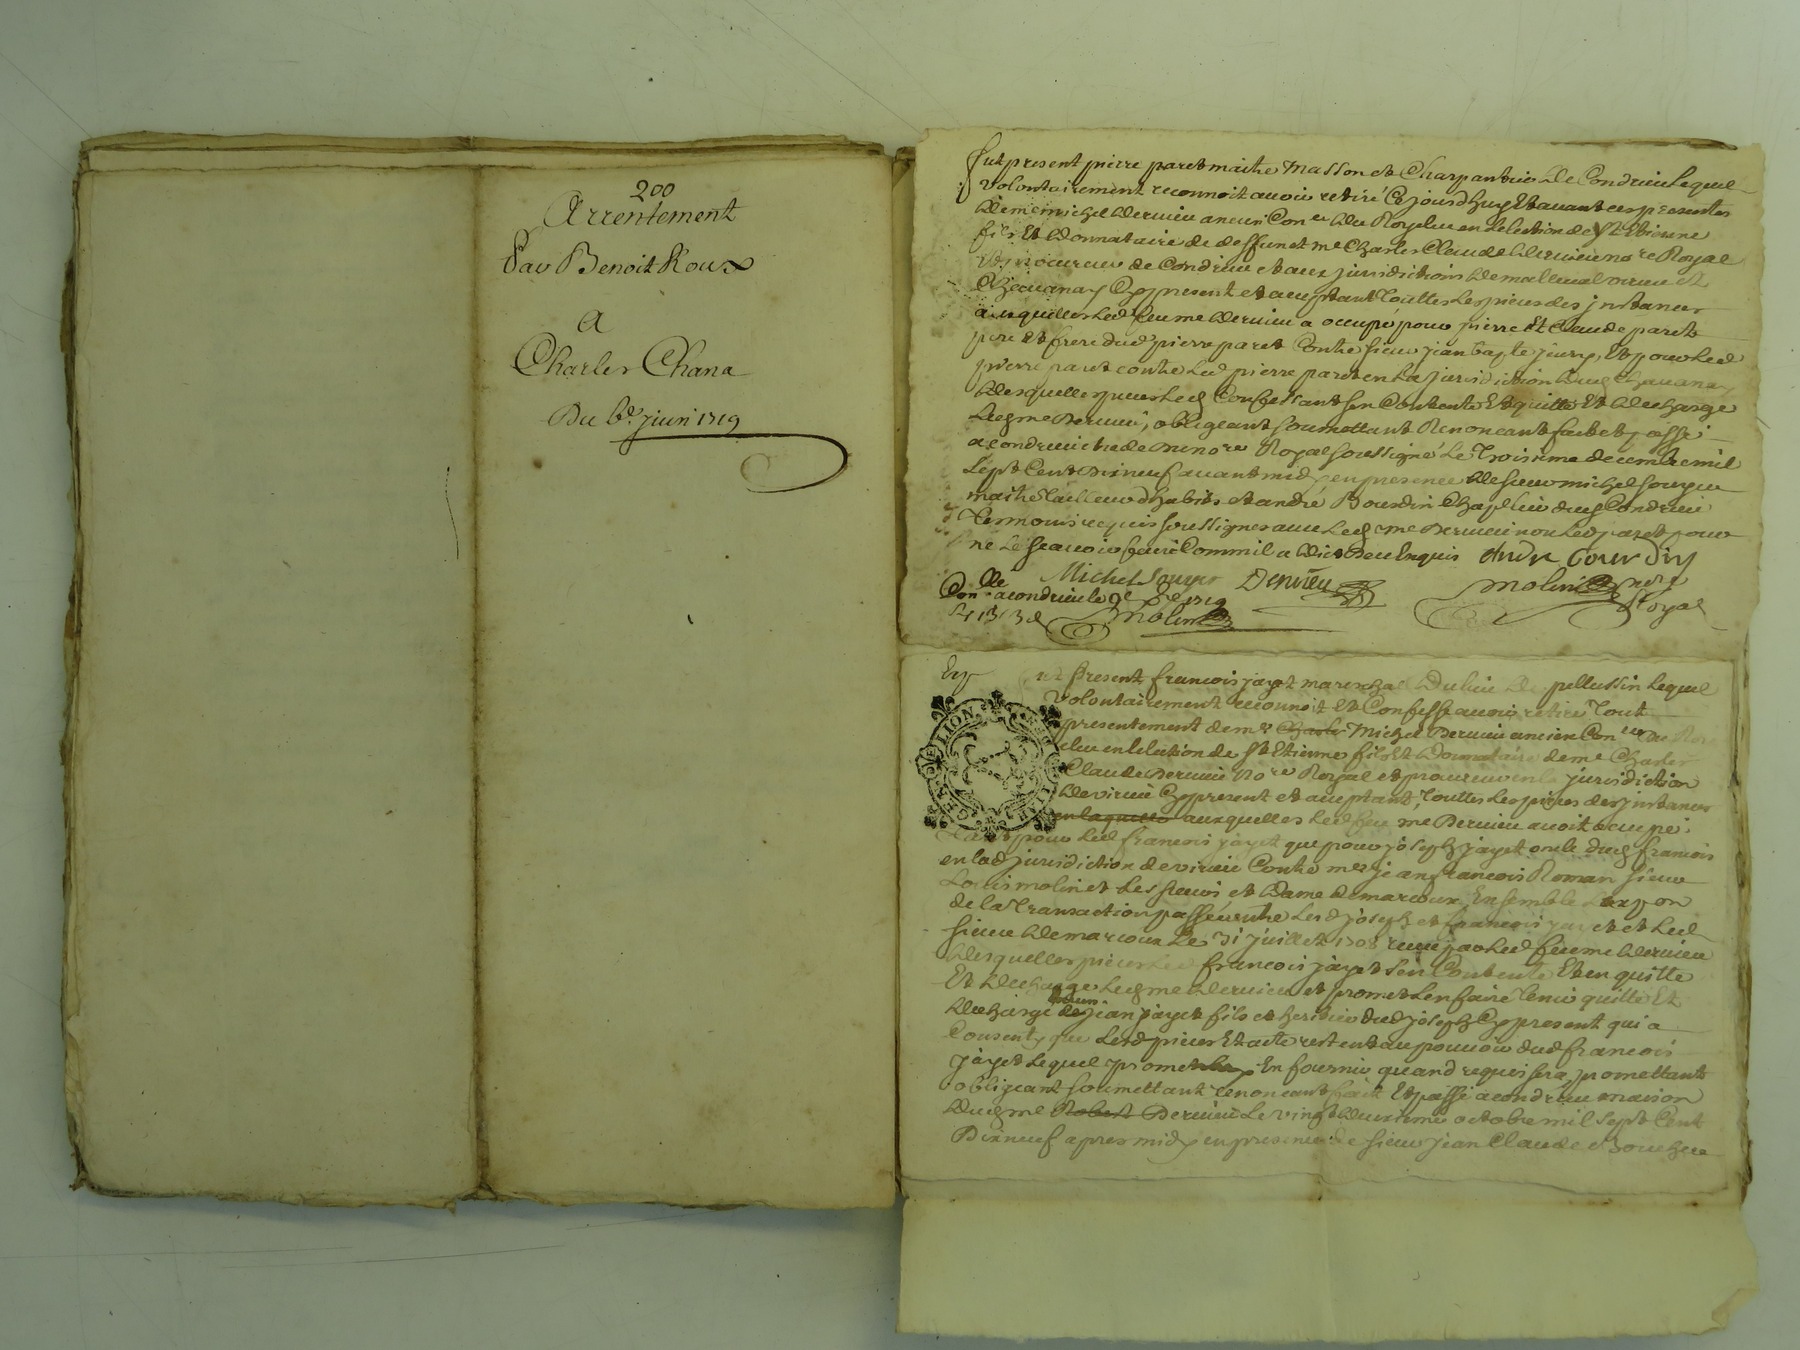 200
Arrentement
Par Benoit Roux
A
Charles Chana
Du 6e juin 1719
Fut present pierre paret maitre Masson et Charpantier de Condrieu Lequel
volontairement reconnoit avoir retiré Cejourdhuy Et avant ces presentes
de me michel dervieu ancien Coner du Roy eleu en Lelection de St Etienne
fils Et donnataire de deffunct me Charles Claude dervieu nore Royal
Et procureur de Condrieu et aux jurisdictions de malleval virieu Et
Chavanay Cy present et aceptant Touttes Les pieces des jnstances
ausquelles Led feu me dervieu a occupé pour pierre Et Claude paret
pere Et frere dud pierre paret Contre sieur jean bapte Et pour Led
pierre paret contre Led pierre paret en La jurisdiction dud Chavanay
desquelles pieces Led Confessant sen Contente Et quitte Et decharge
Led me Dervieu, obligeant soumettant Renoncant fait et passé
a condrieu etude du nore Royal soussigné Le Troisieme decembre mil
sept Cent Dixneuf avant midy en presence de sieur michel souyer
maitre Tailleur dhabits et andré Bourdin Chapelier dud Condrieu
Temoins requis soussignes avec Led me Dervieu non Led paret pour
ne Le scavoir faire Comm il a dict Deu Enquis andre bourdin
Michel Souyer Dervieu molin nore Royal
Conlle a condrieu le 9e Xbre 1719
molin
Exp
Fut Present francois jayet mareschal Du lieu De pellussin Lequel
volontairement reconnoit Et Confesse avoir retiré Tout
presentement de me Charles Michel Dervieu ancien Coner du Roy
eleu en lelection de St Etienne fils Et Donnataire de me Charles
Claude Dervieu Nore Royal et procureur en la jurisdiction
de virieu Cy present et aceptant, Touttes Les pieces des jnstances
en laquelle ausquelles Led feu me Dervieu avoit occupé
Tant pour Led francois jayet que pour joseph jayet oncle dud francois
en lad jurisdiction de virieu Contre me jean francois Roman sieur
Louis molin et Les sieurs et Dame demarcoux Ensemble
de la Transaction passée entre Les d joseph et francois jayet et Led
sieur demarcoux Le 31 juillet 1708 receue par Led feu me dervieu
desquelles pieces Led francois jayet sen Contente Et en quitte
Et decharge Led me dervieu et promet Len faire Tenir quitte Et
decharge de jean jayet fils et heritier dud joseph Cy present qui a
Consenty que Lesd pieces Et acte restent au pouvoir dud francois
jayet Lequel promet En fournir quand requis sera, promettant
obligeant soumettant renoncant fait Et passé a condrieu maison
dud me Robert Dervieu Le vingt deuxieme octobre mil sept Cent
Dixneuf apres midy en presence de sieur jean Claude
GENER DE LION